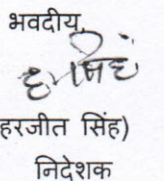 भवदीय,
ह सिंह
हरजीत सिंह)
निदेशक